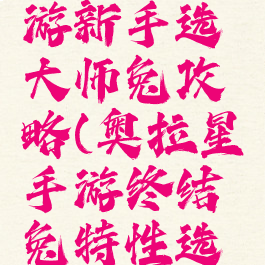 游新手选
大师兔攻
略(奥拉星
手游终结
兔特性选